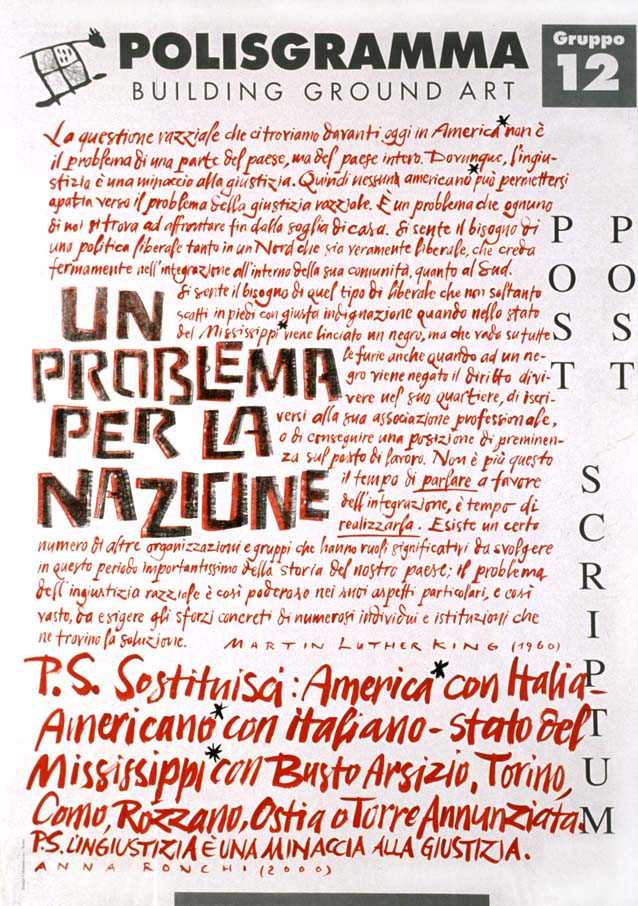 POLISGRAMMA
BUILDING GROUND ART
Gruppo
12
La questione razziale che ci troviamo davanti oggi in America* non è
il problema di una parte del paese, ma del paese intero. Dovunque, l'ingiu-
stizia è una minaccia alla giustizia. Quindi nessun americano* può permettersi
apatia verso il problema della giustizia razziale. È un problema che ognuno
di noi si trova ad affrontare fin dalla soglia di casa. Si sente il bisogno di
una politica liberale tanto in un Nord che sia veramente liberale, che creda
fermamente nell'integrazione all'interno della sua comunità, quanto al Sud.
Si sente il bisogno di quel tipo di liberale che non soltanto
scatti in piedi con giusta indignazione quando nello stato
del Mississippi* viene linciato un negro, ma che vada su tutte
le furie anche quando ad un ne-
gro viene negato il diritto di vi-
vere nel suo quartiere, di iscri-
versi alla sua associazione professionale,
o di conseguire una posizione di preminen-
za sul posto di lavoro. Non è più questo
il tempo di parlare a favore
dell'integrazione, è tempo di
realizzarla. Esiste un certo
numero di altre organizzazioni e gruppi che hanno ruoli significativi da svolgere
in questo periodo importantissimo della storia del nostro paese; il problema
dell'ingiustizia razziale è così poderoso nei suoi aspetti particolari, e così
vasto, da esigere gli sforzi concreti di numerosi individui e istituzioni che
ne trovino la soluzione. MARTIN LUTHER KING (1960)
UN
PROBLEMA
PER LA
NAZIONE
P.S. Sostituisci: America* con Italia-
Americano* con italiano - stato del
Mississippi* con Busto Arsizio, Torino,
Como, Rozzano, Ostia o Torre Annunziata.
P.S. L'INGIUSTIZIA È UNA MINACCIA ALLA GIUSTIZIA.
ANNA RONCHI (2000)
POST
POST SCRIPTUM